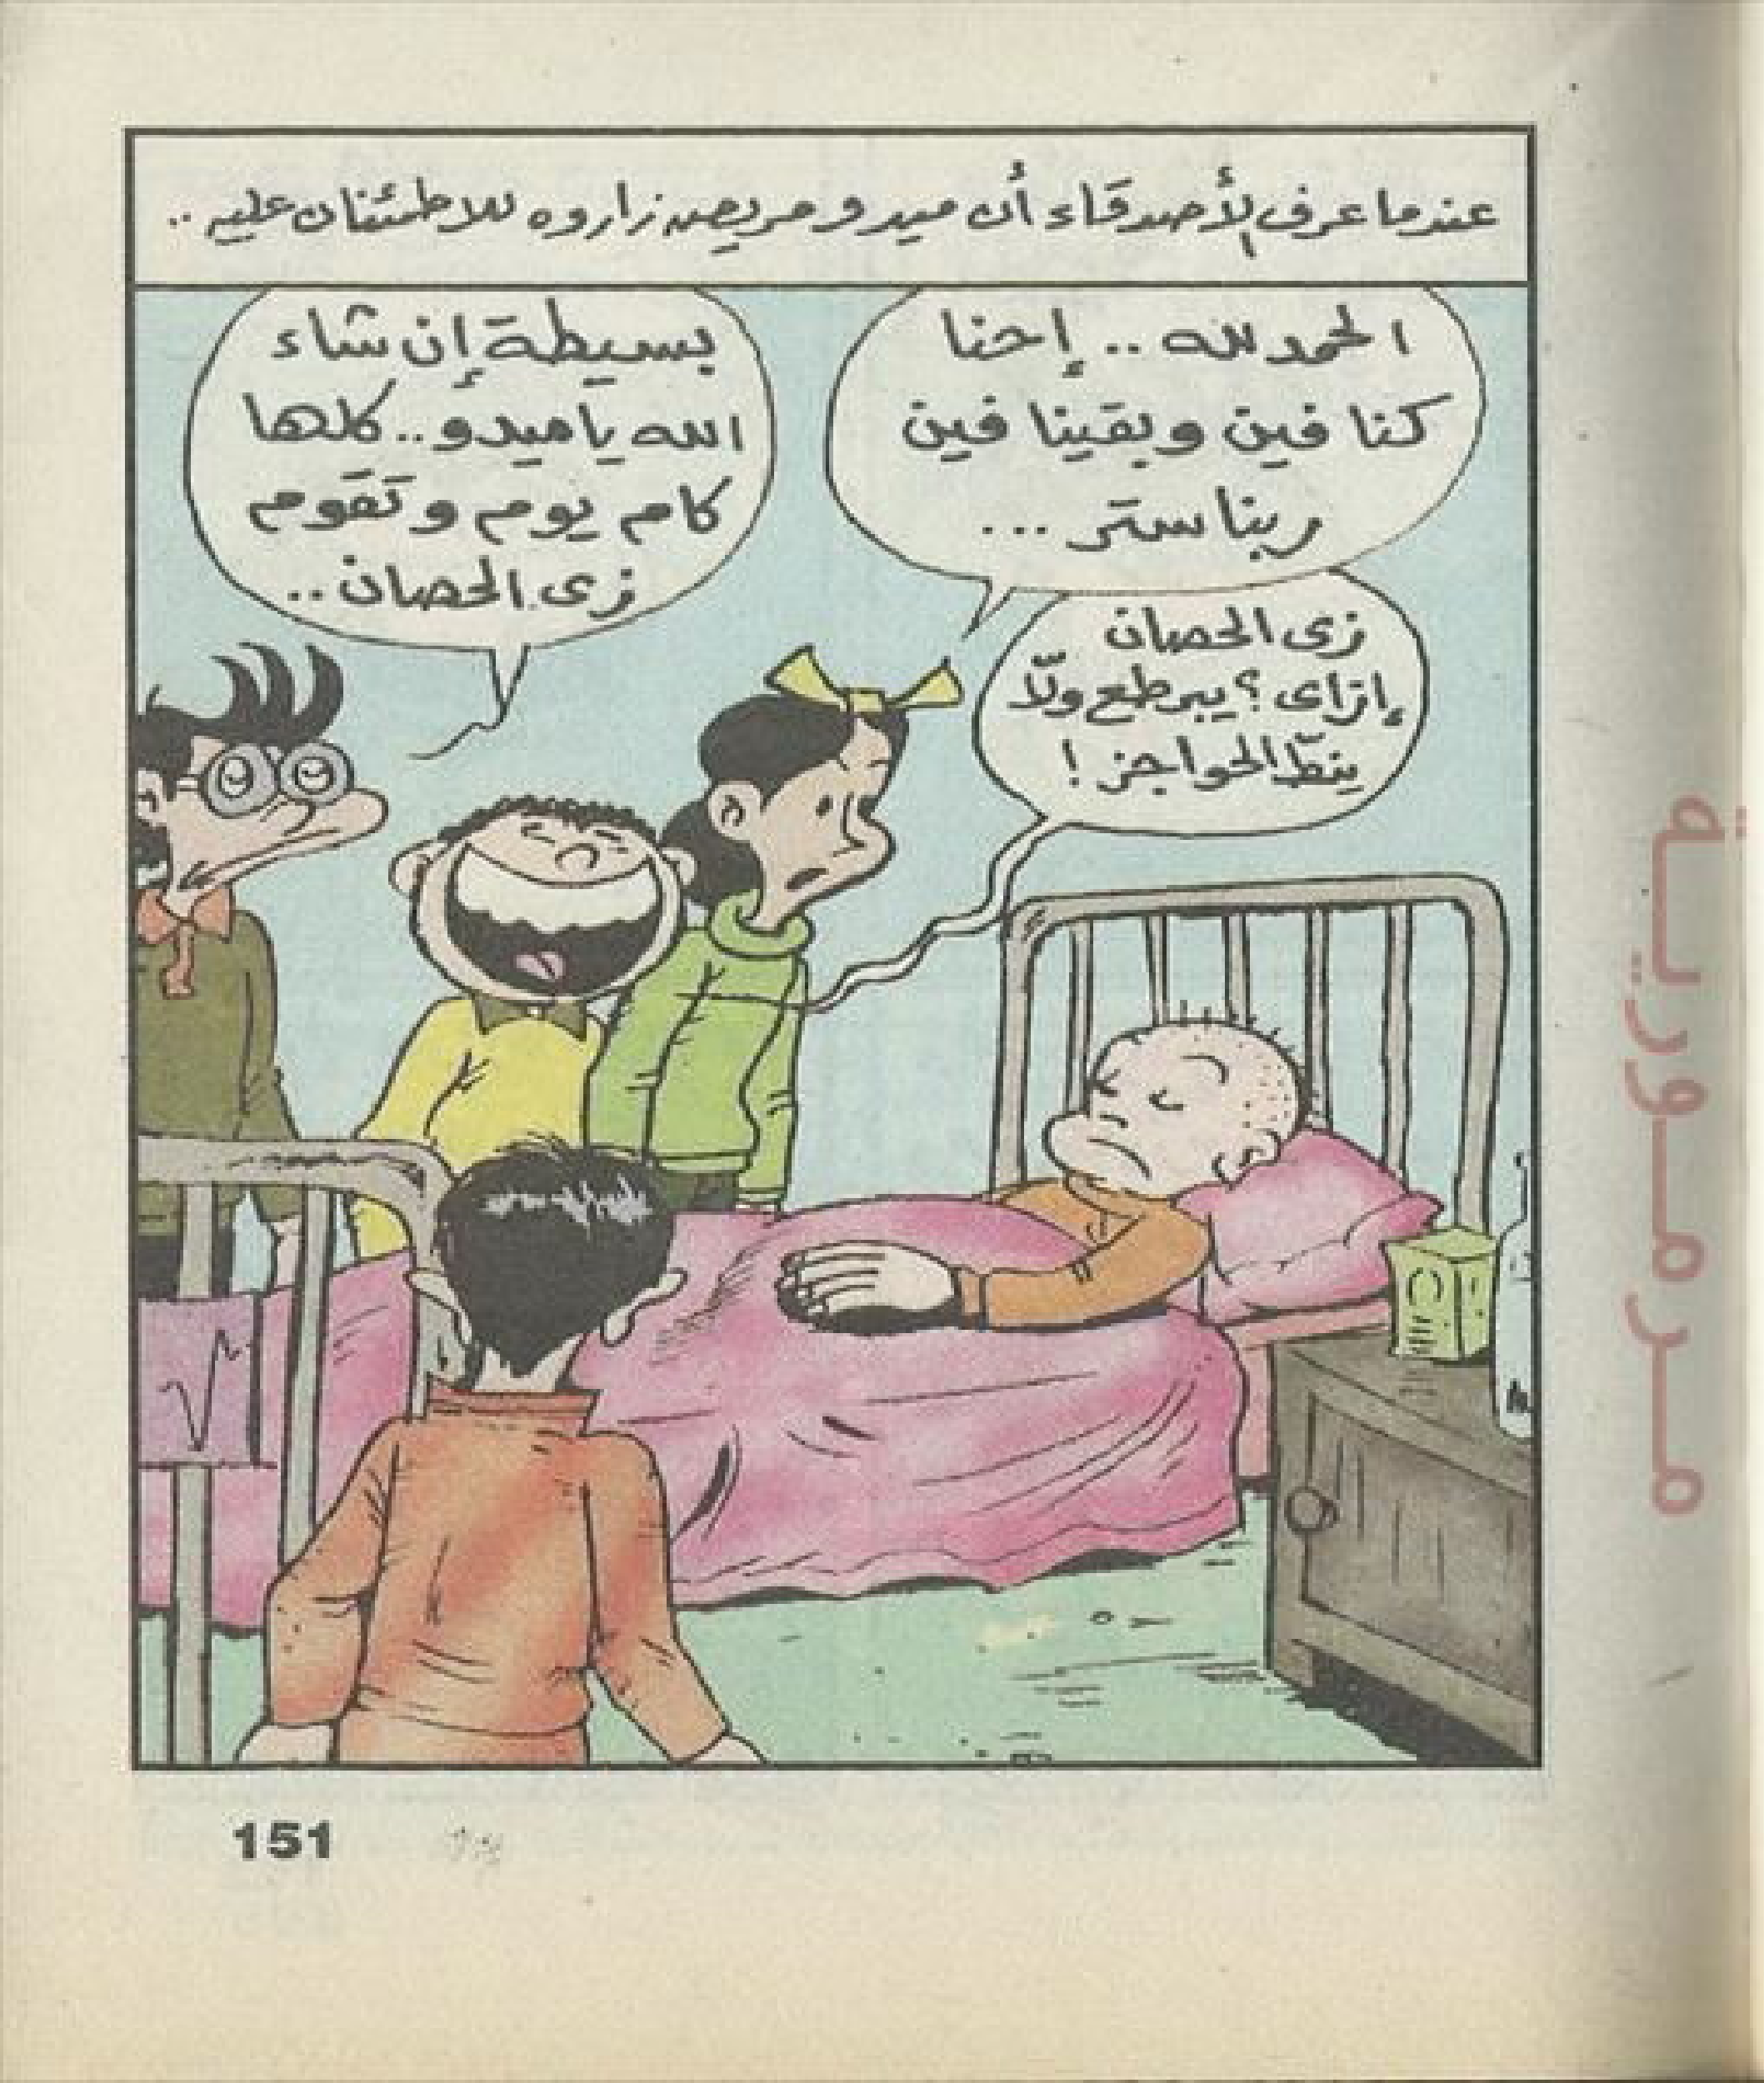 عندما عرف الأصدقاء أن ميدو مريض زاروه للاطمئنان عليه ..
الحمد لله .. إحنا
كنا فين وبقينا فين
ربنا ستر ...
بسيطة إن شاء
الله يا ميدو .. كلها
كام يوم وتقوم
زى الحصان ..
زى الحصان
إزاى ؟ يبرطع ولّا
ينطّ الحواجز !
151
مرمورية